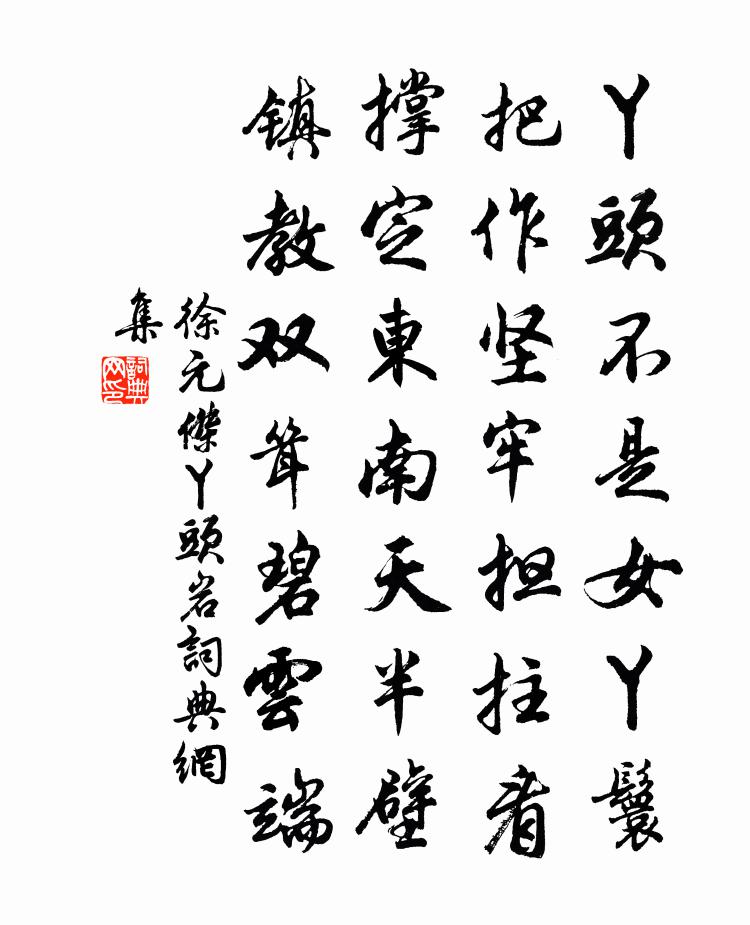 丫頭不是女丫鬟
把作坚牢担拄看
撐定東南天半壁
鎮教双耸碧雲端
徐元傑丫頭岩詞典網
集
詞典网印